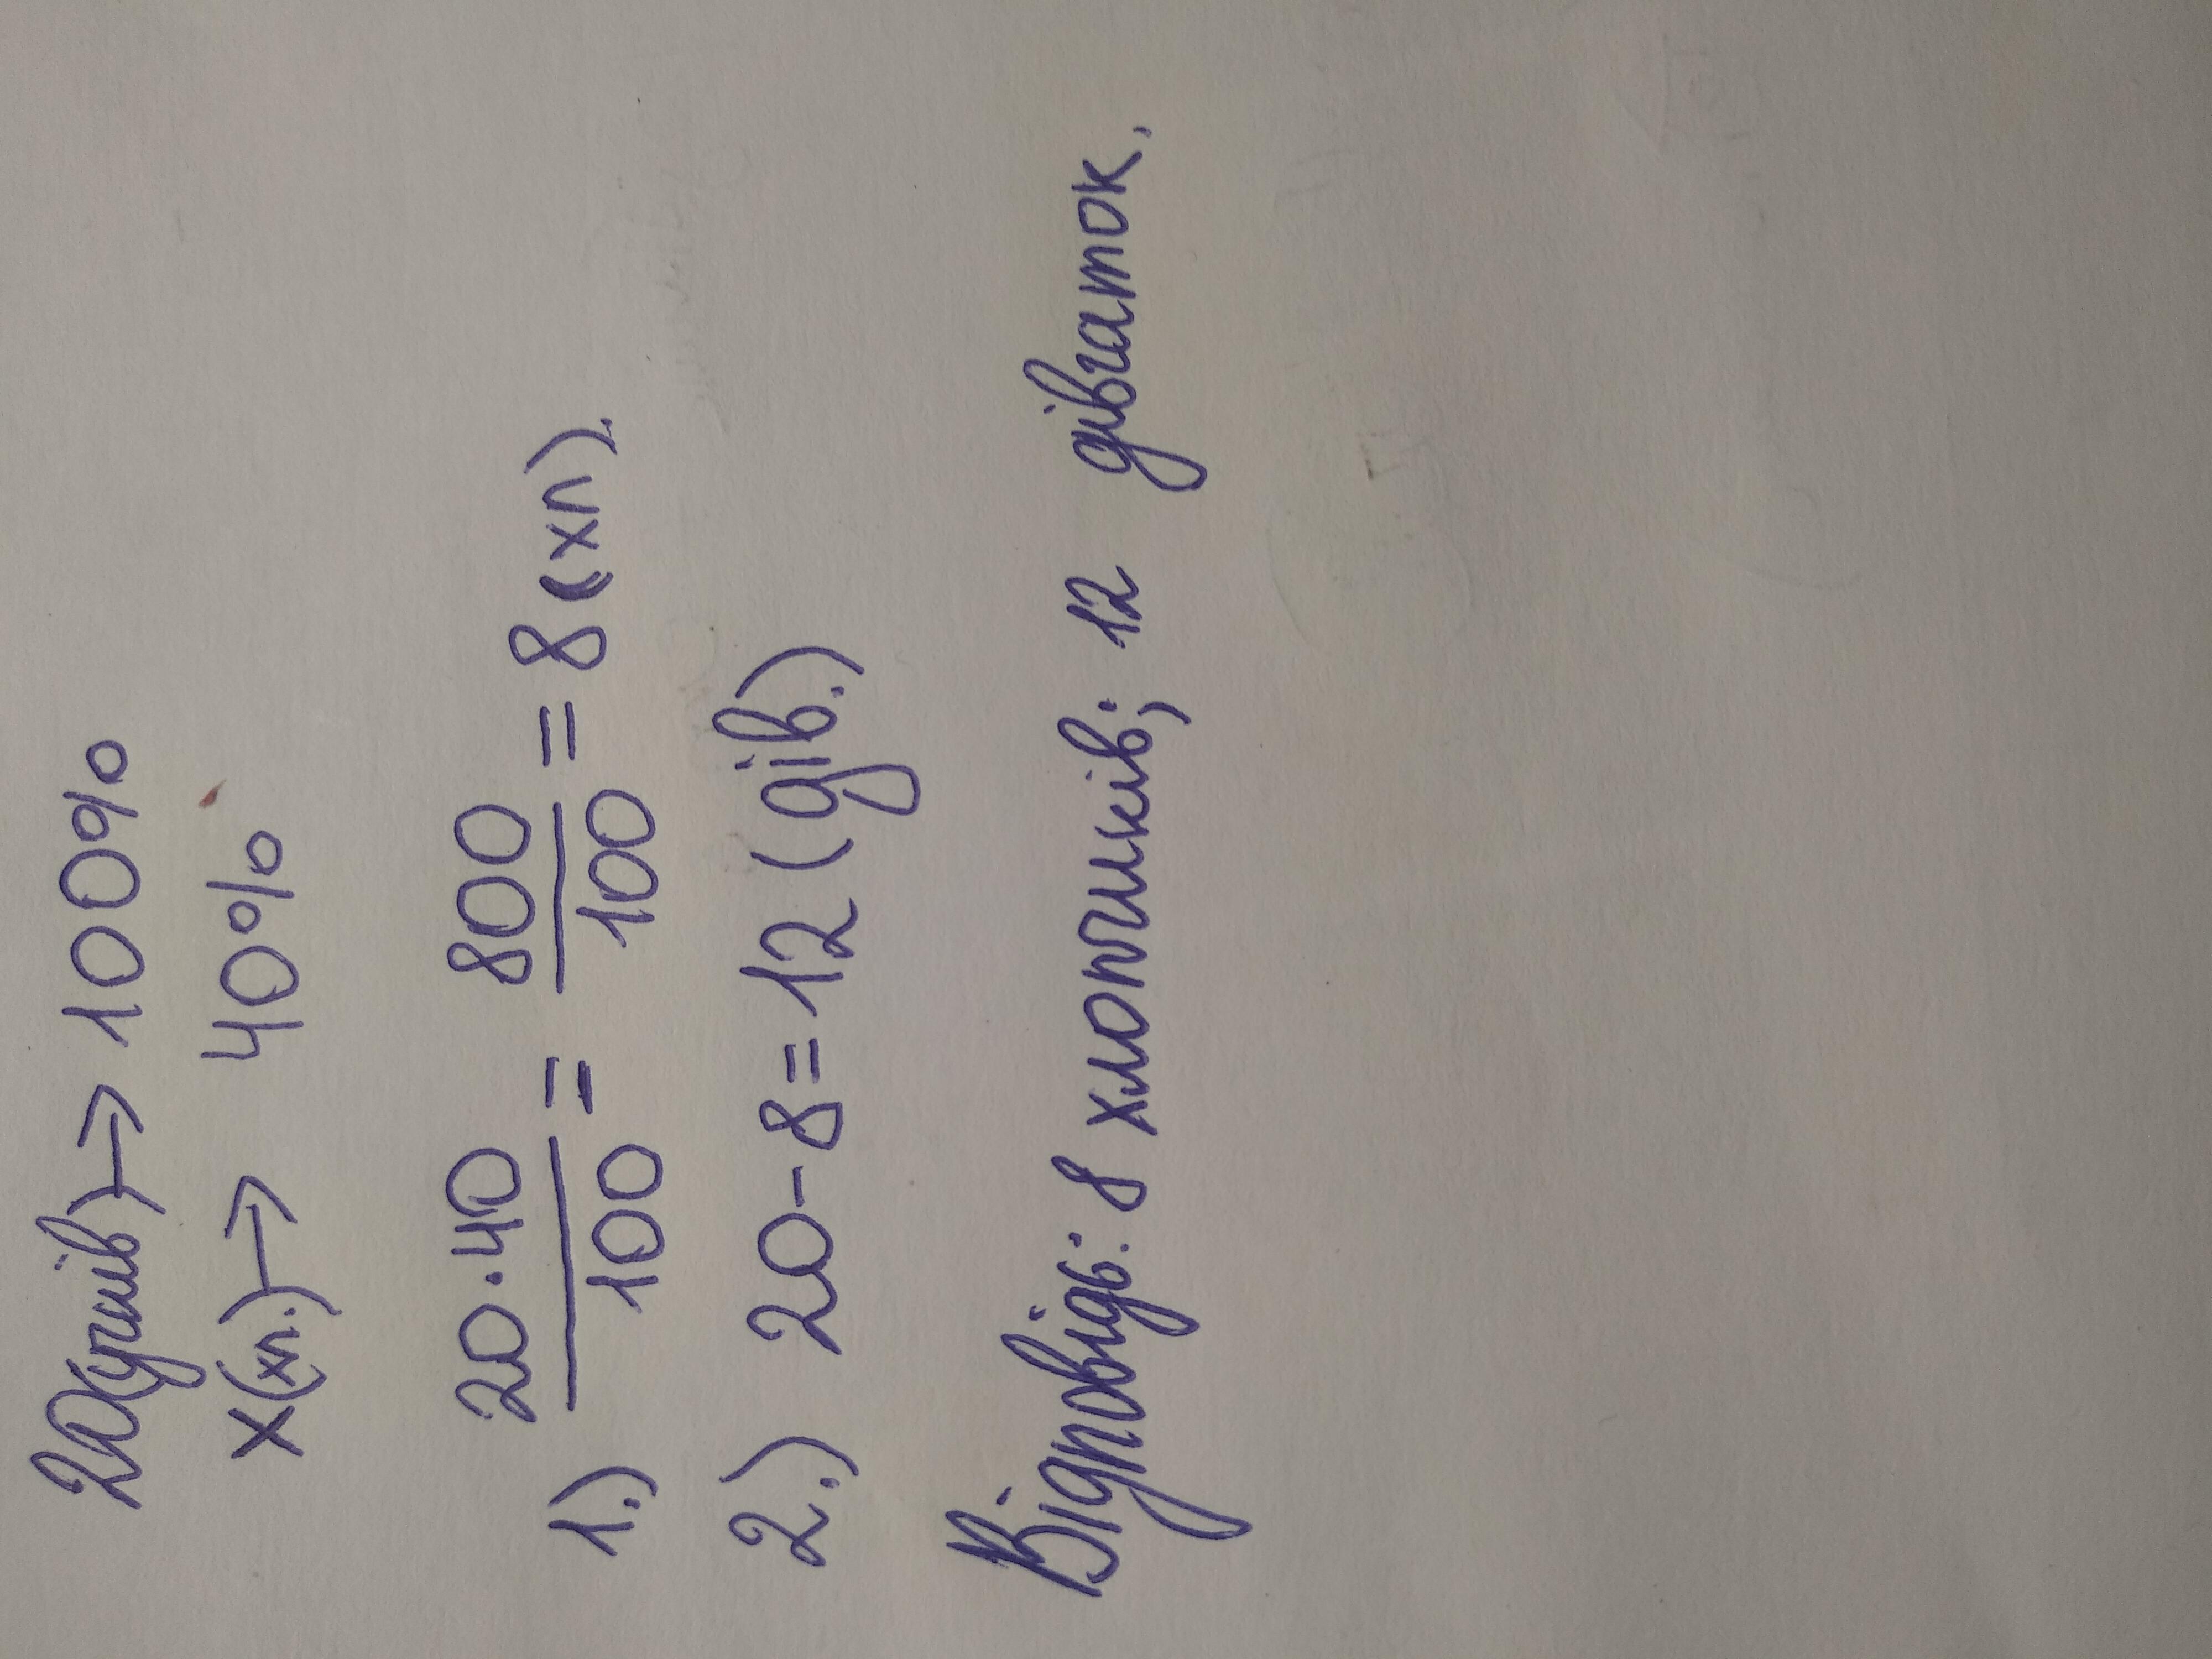 20(учнів) → 100%
x(хл.) → 40%
1.) 20·40/100 = 800/100 = 8 (хл).
2.) 20-8=12 (дів.)
Відповідь: 8 хлопчиків; 12 дівчаток.